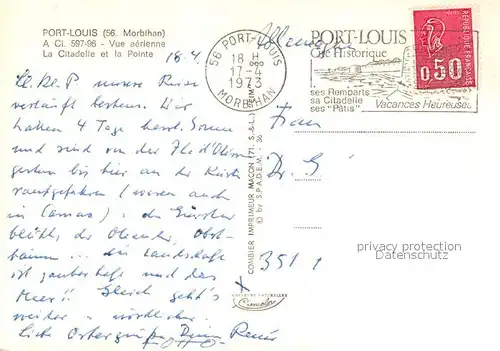 PORT-LOUIS (56. Morbihan)
A Cl. 597-96 - Vue aérienne
La Citadelle et la Pointe
18.4.
unsere Reise
verläuft bestens. Wir
hatten 4 Tage herrl. Sonne
und sind von der Ile d'Oléron
gestern bis hier an der Küste
raufgefahren (waren auch
in
blüht, der Oleander, Obst-
bäume... die Landschaft
ist zauberhaft und das
Meer!! Gleich geht's
weiter nördlicher.
Liebe Ostergrüße Renée
COMBIER IMPRIMEUR MACON (71. S.-&-L.)
© by S.P.A.D.E.M. - 36
Cim
Allemagne
56 PORT-LOUIS
18 H
17-4
1973
MORBIHAN
PORT-LOUIS
Cité Historique
ses Remparts
sa Citadelle
ses "Pâtis"
Vacances Heureuses
0,50
Frau
Dr. G
351
privacy protection
Datenschutz